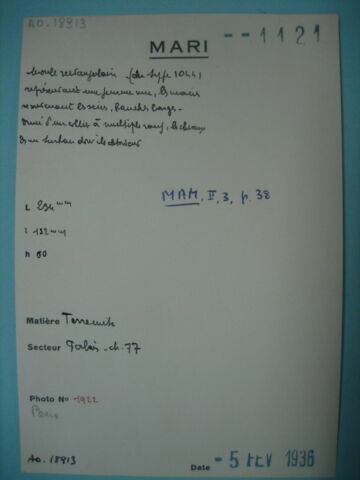 AO. 18913
MARI
-- 1121
Moule rectangulaire (du type 1044)
représentant une femme nue, les mains
soutenant les seins, hanches larges -
ornée d'un collier à multiple rang, les cheveux
L 234 mm
MAM, II, 3, p. 38
l 132 mm
h 60
Matière Terre cuite
Secteur Palais - ch. 77
Photo No -1922
Paris
AO. 18913
Date - 5 FEV 1936